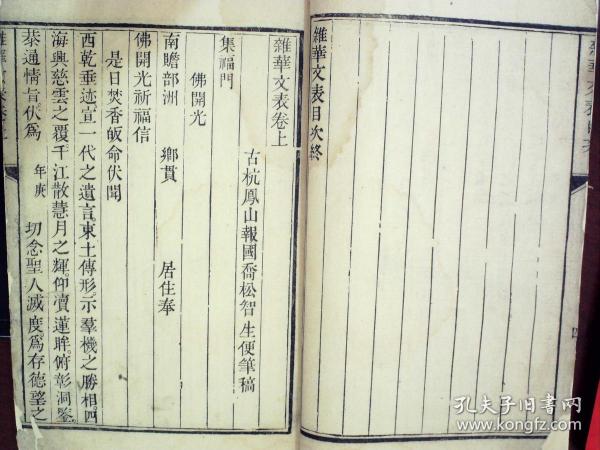 雜華文表目次終
雜華文表卷上
古杭鳳山報國喬松智 生便筆稿
集福門
佛開光
南贍部洲 鄉貫 居住奉
佛開光祈福信
是日焚香皈命伏聞
西乾垂迹宣一代之遺言東土傳形示羣機之勝相四
海興慈雲之覆千江散慧月之輝仰瀆蓮眸俯彰洞鑒
恭通情旨伏爲 年庚 切念聖人滅度爲存德望之
孔夫子旧书网
www.kongfz.com